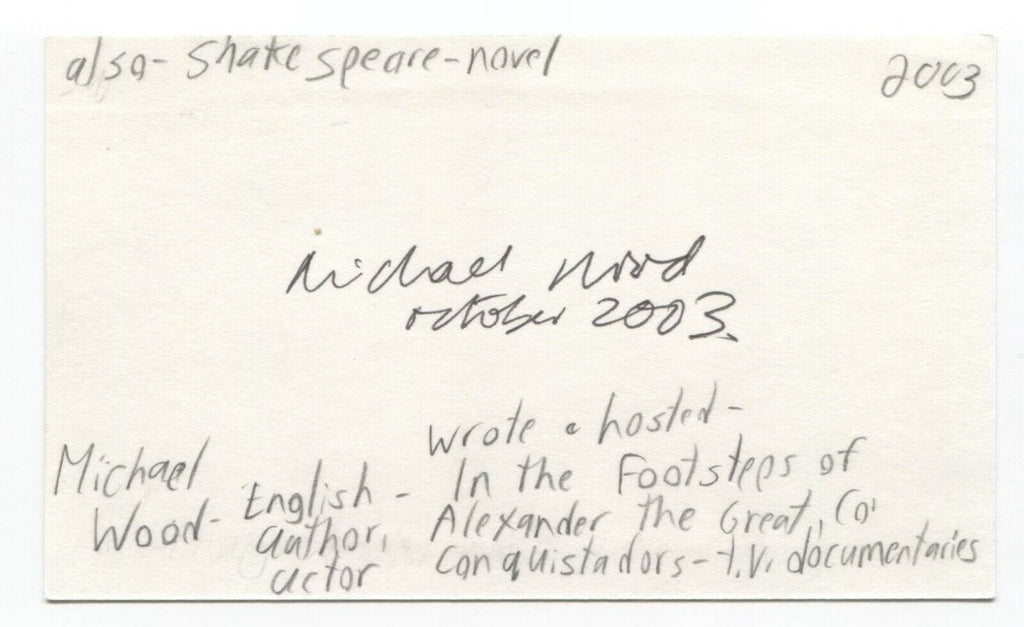 also- Shakespeare-novel
2003
Michael Wood
October 2003.
Wrote & hosted-
Michael Wood- English author, actor - In the Footsteps of
Alexander the Great, Co'
Conquistadors-t.V. documentaries